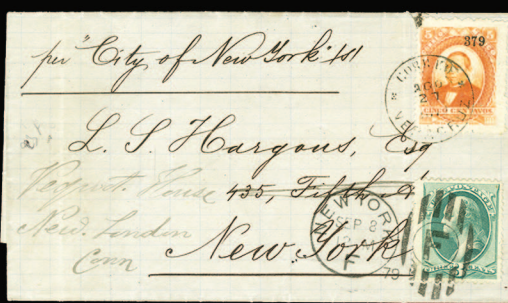 per "City of New York" str
379
CORREO
AGO
27
VERACRUZ
CINCO CENTAVOS
L. S. Hargous, Esq
Pequot House 435, Fifth Av
New London
Conn
New York
NEW YORK
SEP 8
79